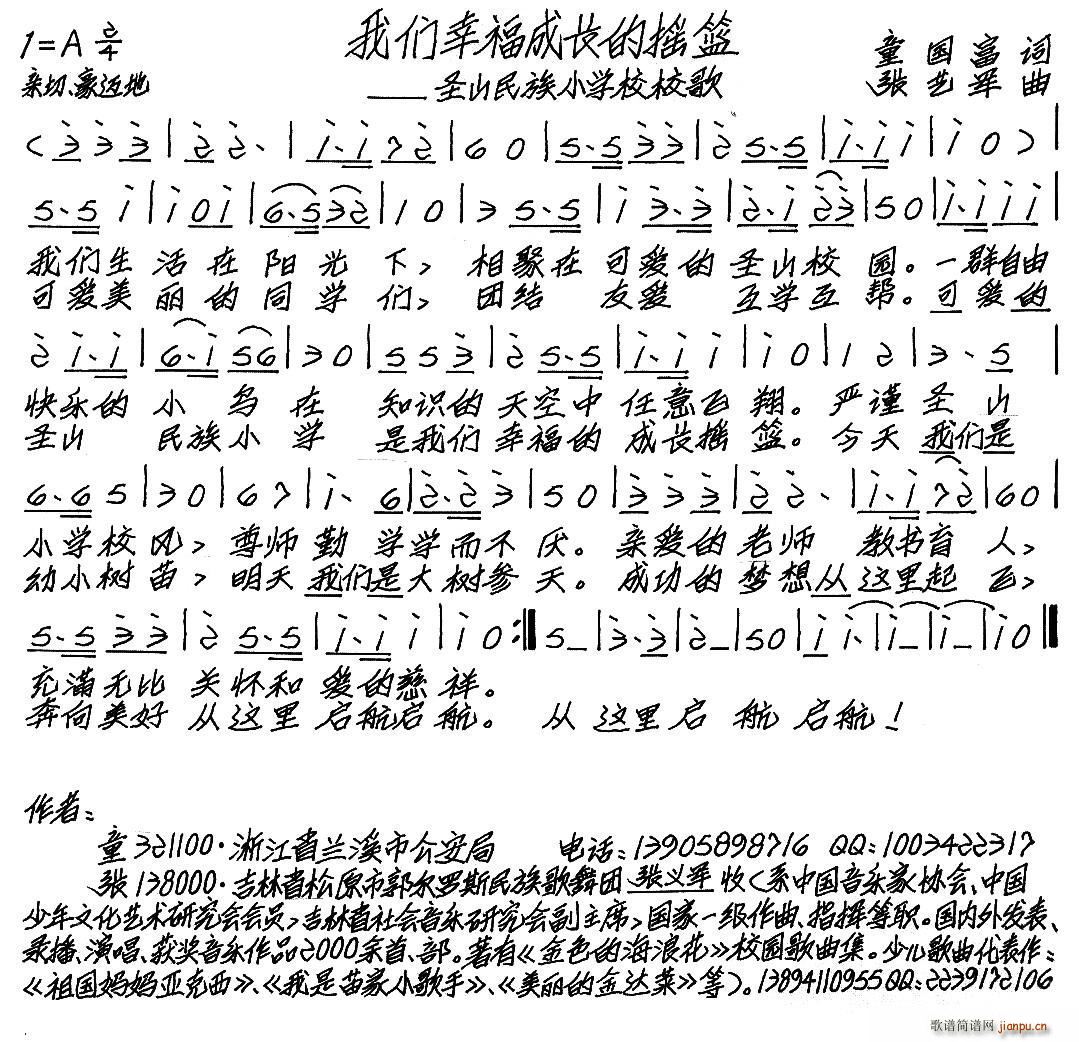 1=A 2/4
我们幸福成长的摇篮
童国富 词
亲切、豪迈地
——圣山民族小学校校歌
张艺军 曲
(3 3 3 | 2 2· | 1·1 7 2 | 6 0 | 5·5 3 3 | 2 5·5 | 1·1 1 | 1 0 ) |
5·5 1 | 1 0 1 | 6·5 3 2 | 1 0 | 3 5·5 | 1 3·3 | 2·1 2 3 | 5 0 | 1·1 1 1 |
我们生 活在 阳光 下, 相聚在 可爱的 圣山校 园。一群自由
可爱美 丽的 同学 们, 团结 友爱 互学互 帮。可爱的
2 1·1 | 6·1 5 6 | 3 0 | 5 5 3 | 2 5·5 | 1·1 1 | 1 0 | 1 2 | 3· 5 |
快乐的 小鸟在 知识的 天空中 任意飞 翔。严谨圣山
圣山 民族小学 是我们 幸福的 成长摇 篮。今天 我们是
6·6 5 | 3 0 | 6 7 | 1· 6 | 2·2 3 | 5 0 | 3 3 3 | 2 2· | 1·1 7 2 | 6 0 |
小学校风, 尊师勤 学学而不 厌。亲爱的 老师 教书育 人,
幼小树苗, 明天 我们是大树参 天。成功的 梦想从这里起 飞,
5·5 3 3 | 2 5·5 | 1·1 1 | 1 0 :‖ 5 – | 3·3 | 2 – | 5 0 | 1 1· | 1 – | 1 – | 1 0 ‖
充满无比 关怀和 爱的慈 祥。
奔向美好 从这里 启航启航。 从 这里启 航 启航!
作者:
童 321100·浙江省兰溪市公安局 电话:13905898716 QQ:1003422317
张 138000·吉林省松原市郭尔罗斯民族歌舞团 张义军 收(系中国音乐家协会、中国
少年文化艺术研究会会员,吉林省社会音乐研究会副主席,国家一级作曲、指挥等职。国内外发表、
录播、演唱、获奖音乐作品2000余首、部。著有《金色的海浪花》校园歌曲集。少儿歌曲代表作:
《祖国妈妈亚克西》、《我是苗家小歌手》、《美丽的金达莱》等)。13894110955 QQ:2239172106
歌谱简谱网 jianpu.cn